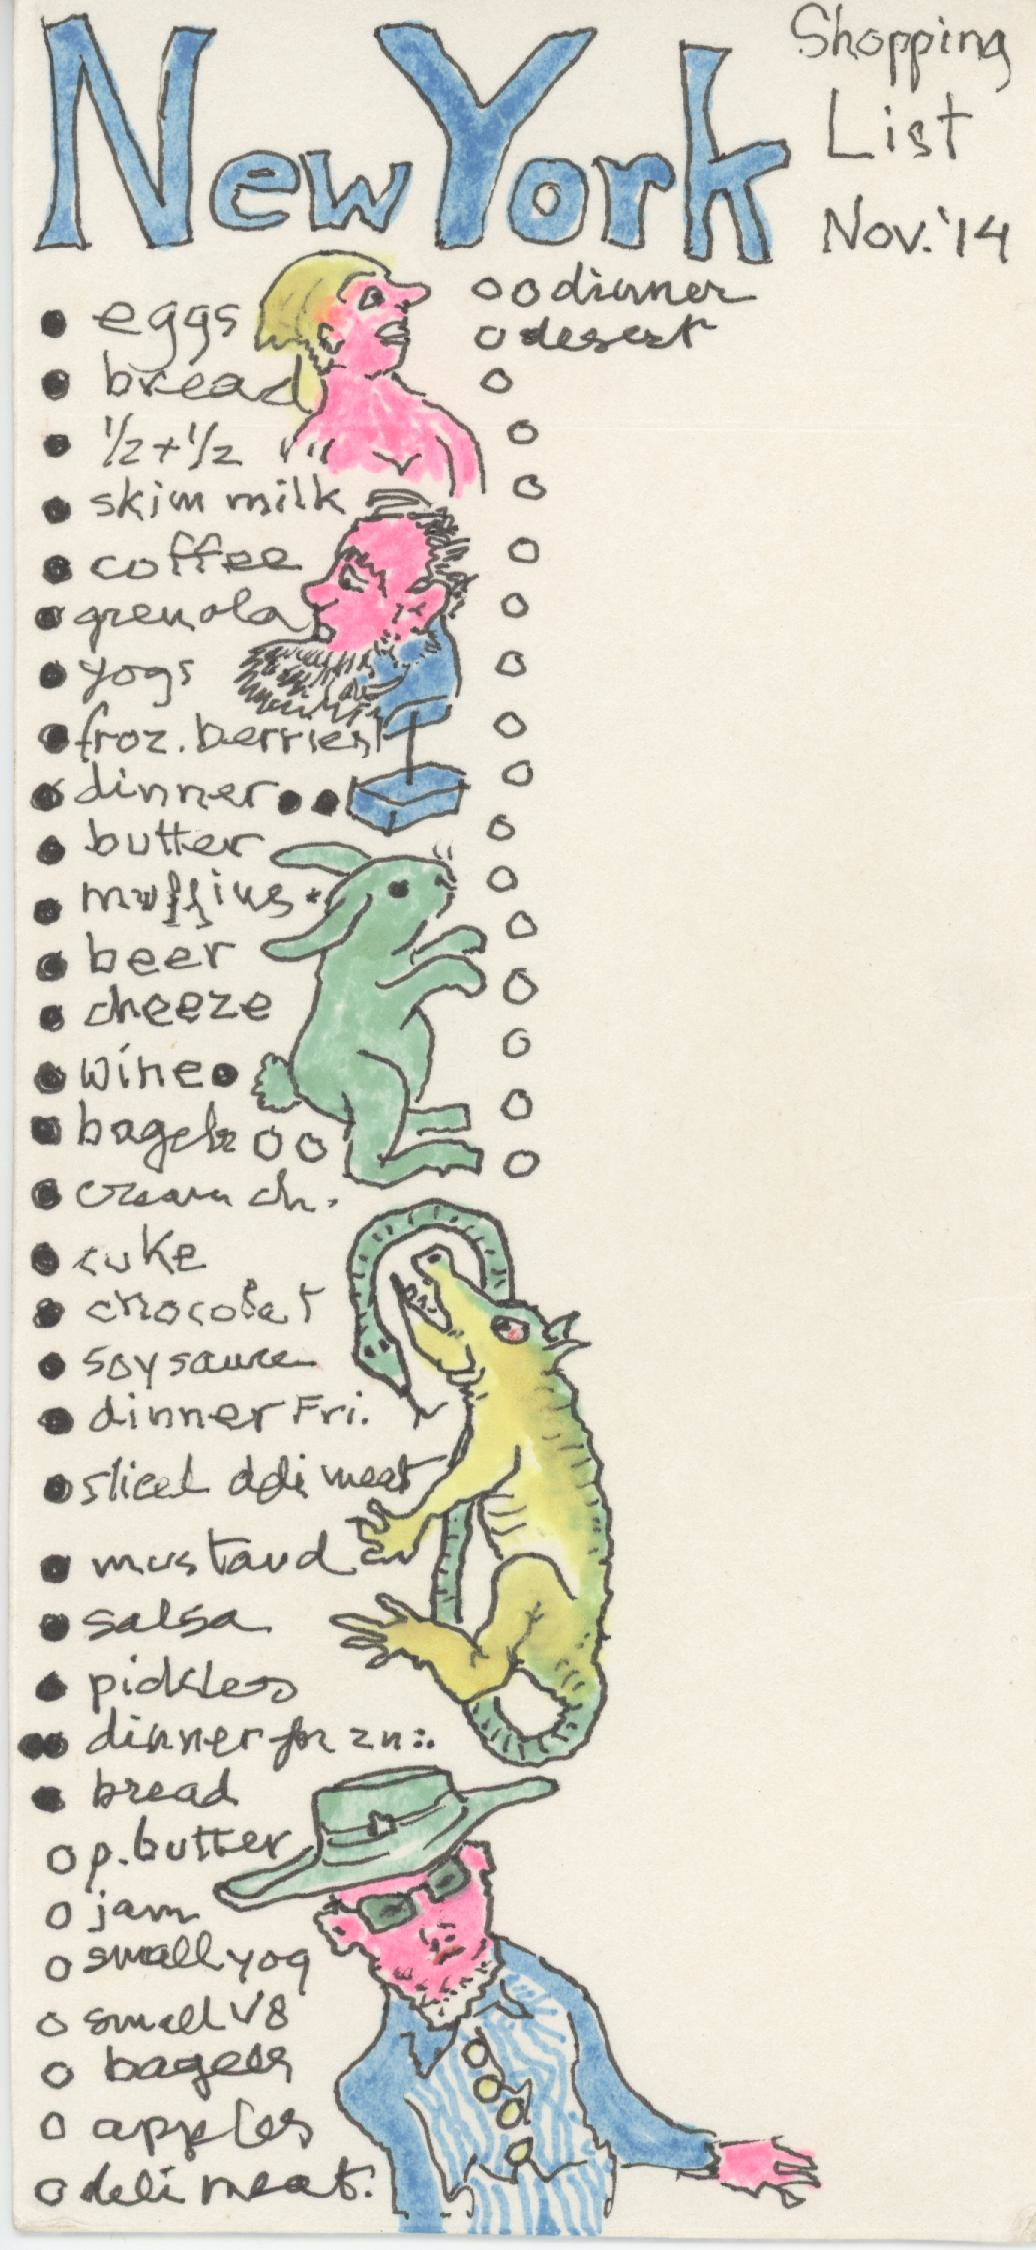 New York
Shopping
List
Nov. '14
eggs
bread
1/2 + 1/2
skim milk
coffee
grenola
yogs
froz. berries
dinner
butter
muffins
beer
cheeze
wine
bagels
cream ch.
cuke
chocolat
soy sauce
dinner Fri.
sliced deli meat
mustard
salsa
pickles
dinner for 2 n
bread
p. butter
jam
small yog
small V8
bagels
apples
deli meat.
dinner
desert